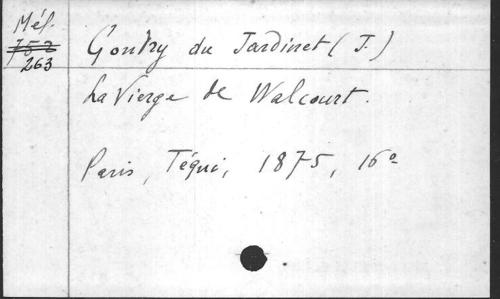 Mél.
752
263
Gontry du Jardinet (J.)
La Vierge de Walcourt.
Paris, Téqui, 1875, 16°